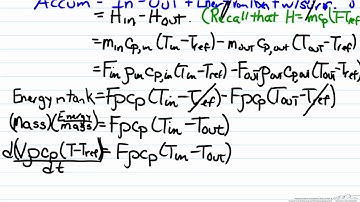 Accum = In - Out +
= Hin - Hout. (Recall that H=mcp(T-Tref
= min cp,in (Tin-Tref) - mout cp,out (Tout-Tref)
= Fin ρin cp,in (Tin-Tref) - Fout ρout cp,out (Tout-Tref)
Energy in tank = Fρcp (Tin-Tref) - Fρcp (Tout-Tref)
(Mass)(Energy/mass) = Fρcp (Tin-Tout)
d(Vρcp(T-Tref))/dt = Fρcp (Tin-Tout)